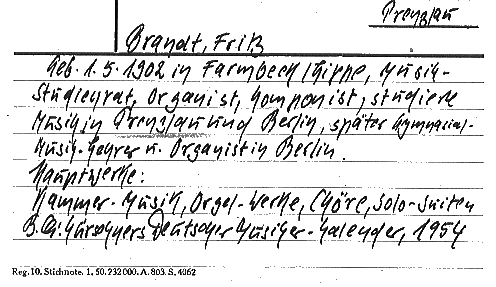 Prenzlau
Brandt, Fritz
Geb. 1.5.1902 in Farmbeck/Lippe, Musik-
studienrat, Organist, Komponist, studierte
Musik in Prenzlau und Berlin, später Gymnasial-
Musik-Lehrer u. Organist in Berlin.
Hauptwerke:
Kammer-Musik, Orgel-Werke, Chöre, Solo-Suiten
Kürschners Deutscher Musiker-Kalender, 1954
Reg. 10. Stichnote. 1. 50. 232 000. A. 803. S. 4062